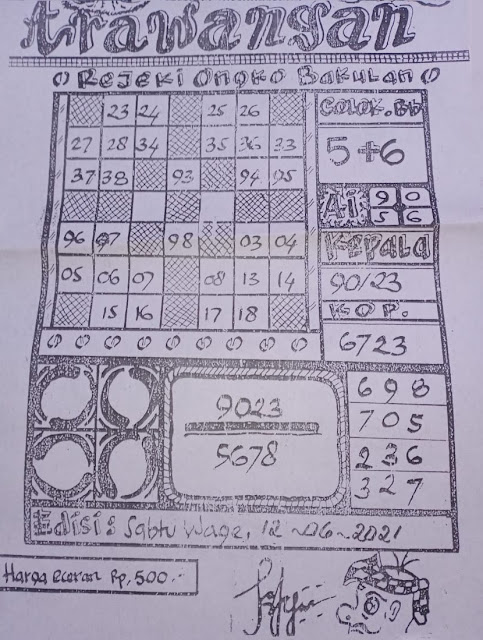 Arawangan
Rejeki Onoko Bakulan
23 24 25 26
27 28 34 35 36 33
37 38 93 94 95
96 97 98 03 04
05 06 07 08 13 14
15 16 17 18
Colok. Bb
5+6
Ai 90
56
Kepala
90/23
KOP.
6723
9023
5678
698
705
236
327
Edisi: Sabtu Wage, 12-06-2021
Harga eceran Rp. 500.-